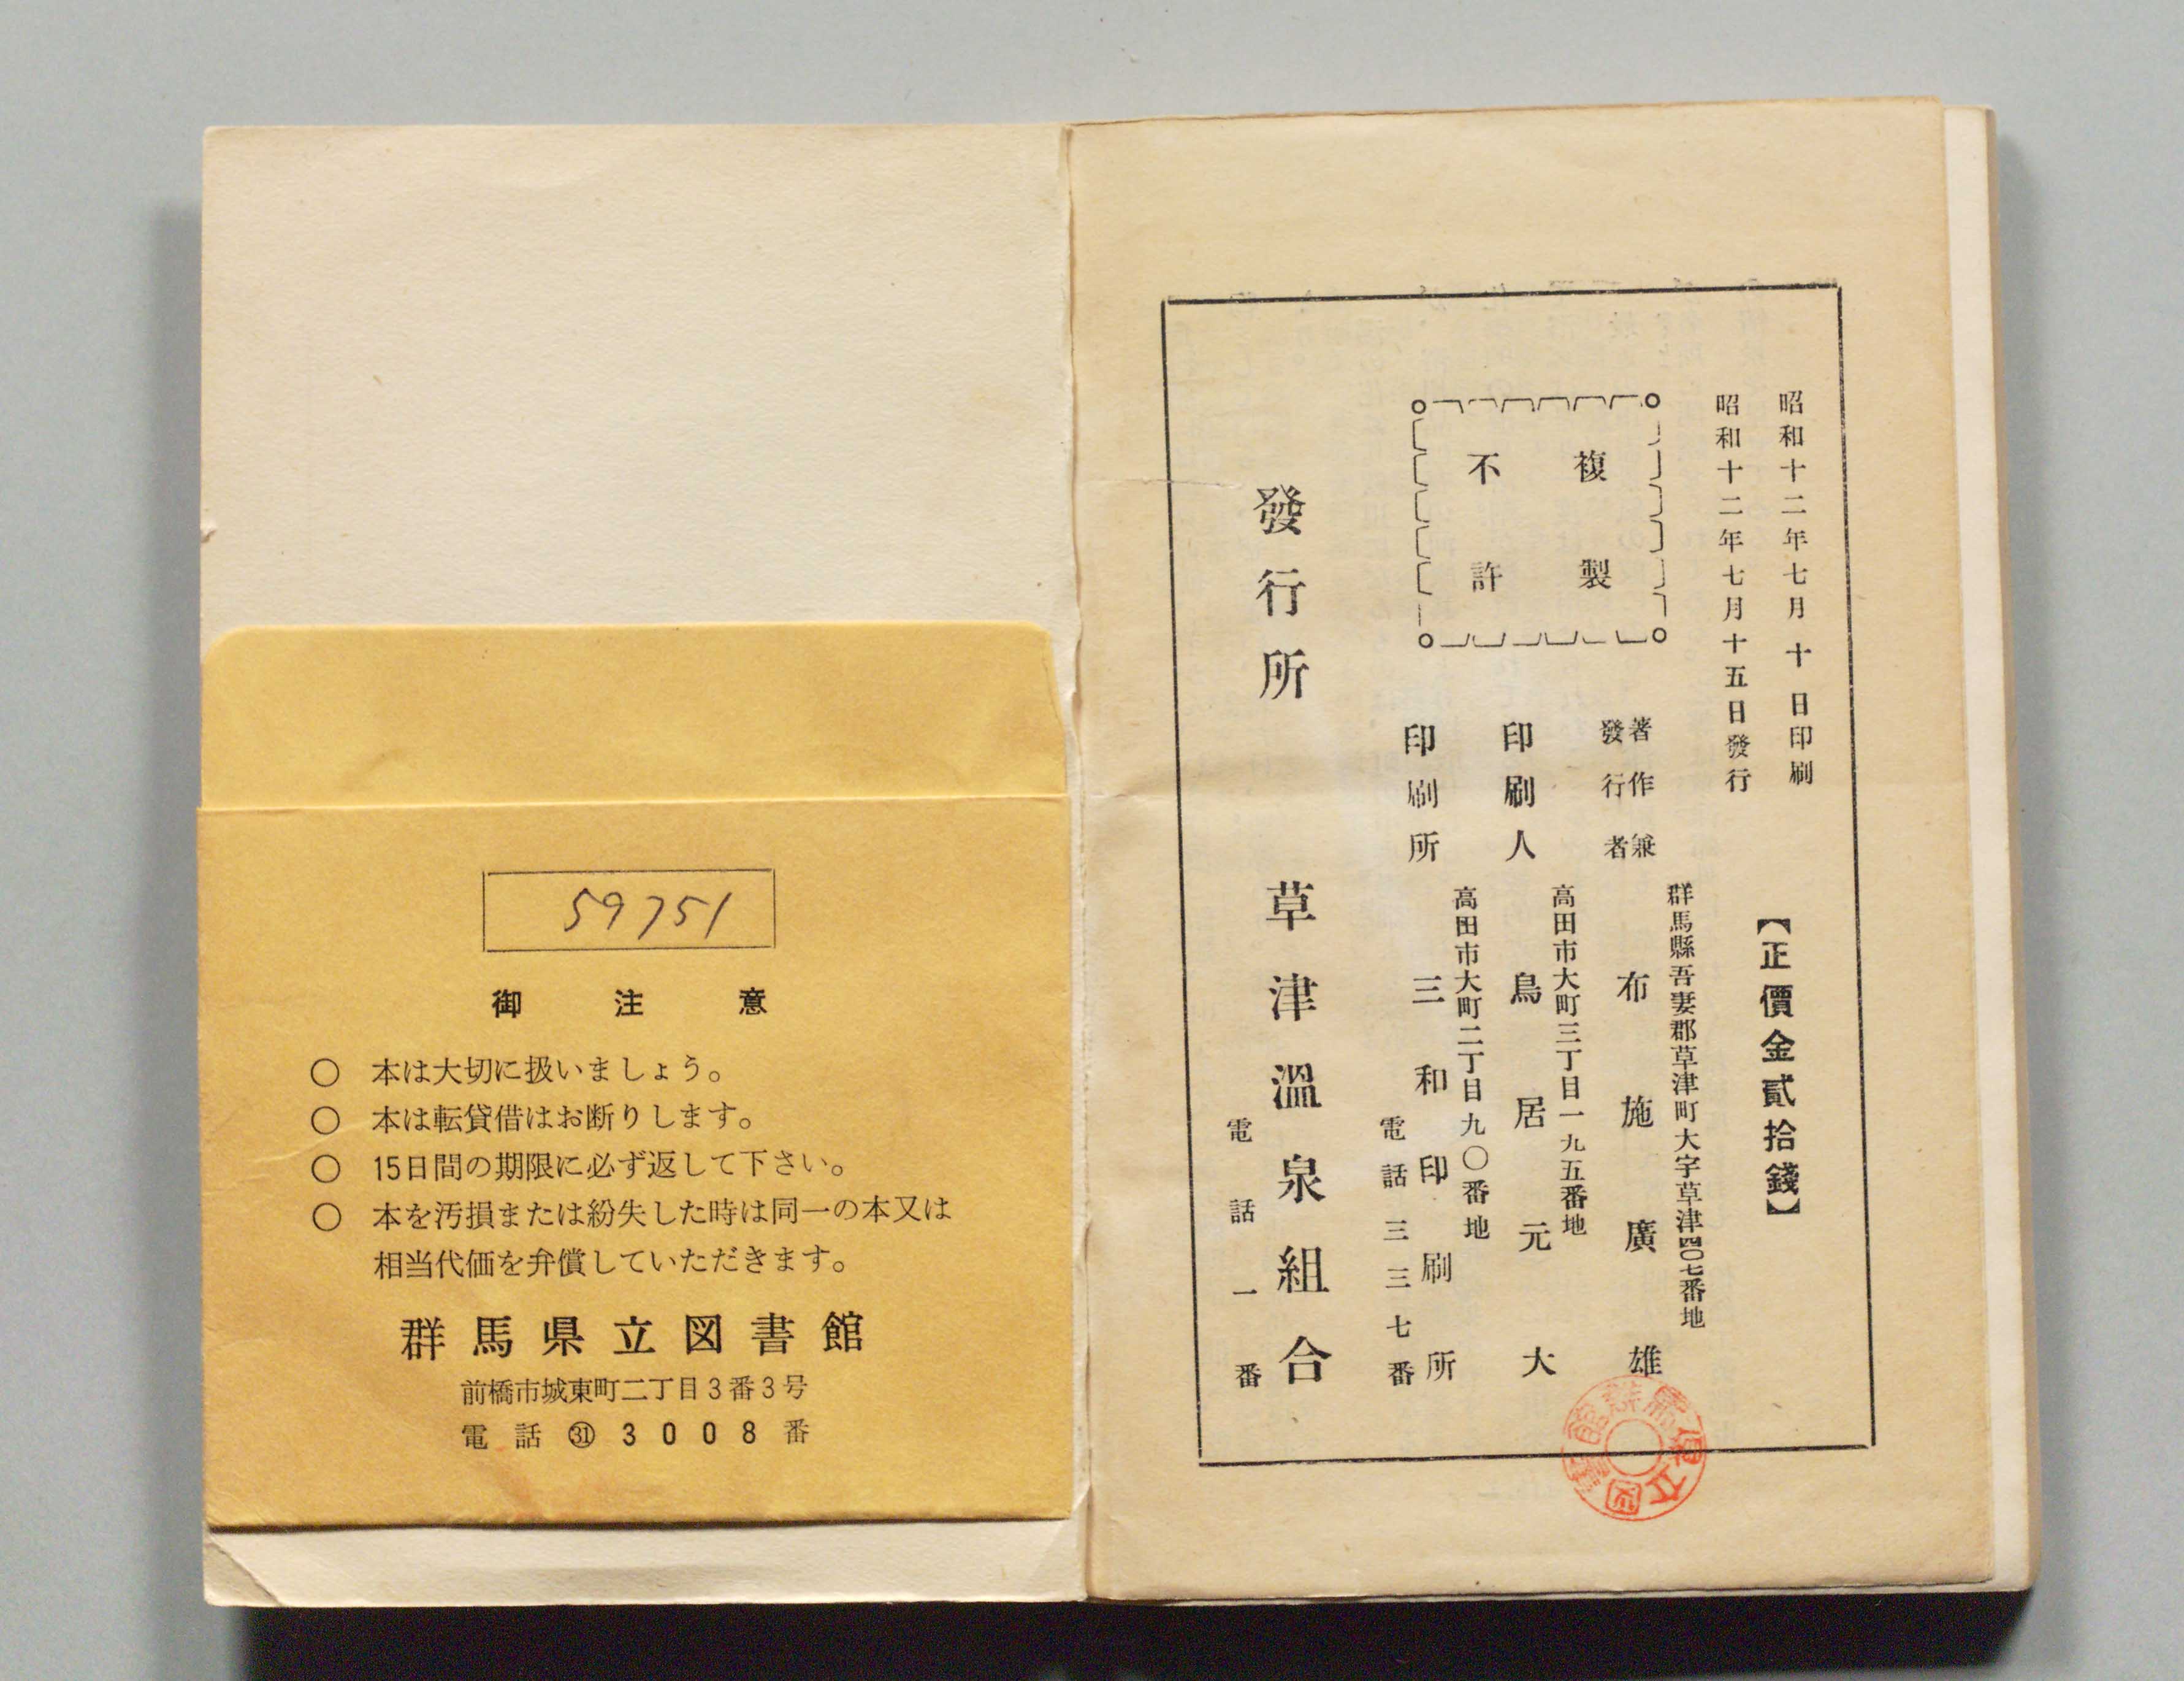 昭和十二年七月十日印刷
昭和十二年七月十五日發行
【正價金貳拾錢】
複製
不許
群馬縣吾妻郡草津町大字草津四〇七番地
著作兼
發行者
布施廣雄
高田市大町三丁目一九五番地
印刷人
鳥居元大
高田市大町二丁目九〇番地
印刷所
三和印刷所
電話三三七番
發行所
草津溫泉組合
電話一番
59751
御注意
○ 本は大切に扱いましょう。
○ 本は転貸借はお断りします。
○ 15日間の期限に必ず返して下さい。
○ 本を汚損または紛失した時は同一の本又は
相当代価を弁償していただきます。
群馬県立図書館
前橋市城東町二丁目3番3号
電話㉛3008番